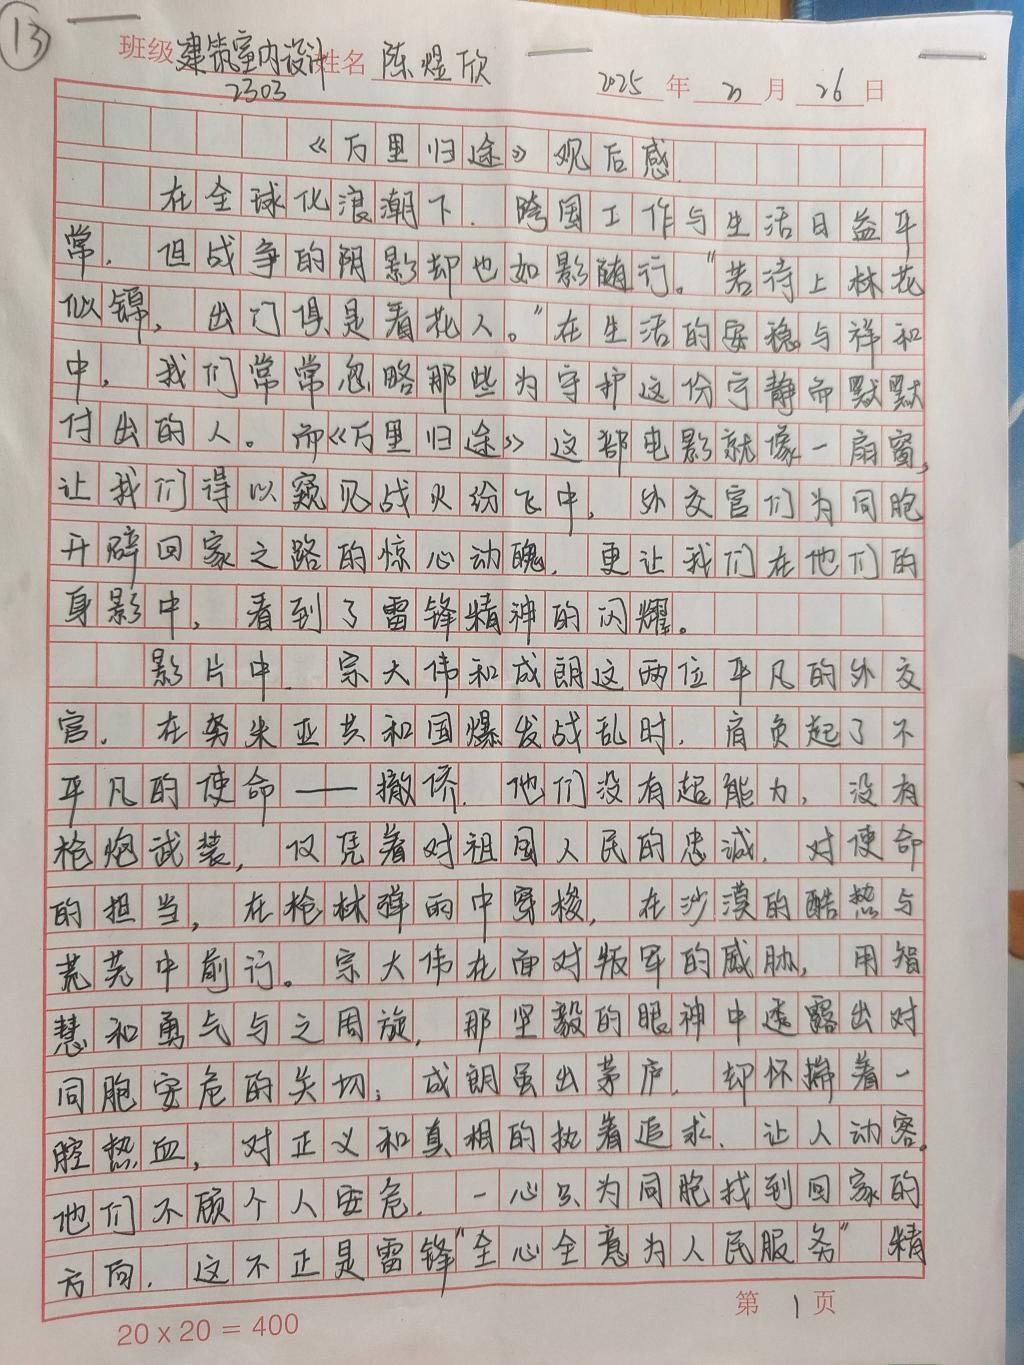 13
班级 建筑室内设计 姓名 陈煜欣 2025 年 2 月 26 日
2303
《万里归途》观后感
在全球化浪潮下,跨国工作与生活日益平
常,但战争的阴影却也如影随行。“若待上林花
似锦,出门俱是看花人。”在生活的安稳与祥和
中,我们常常忽略那些为守护这份宁静而默默
付出的人。而《万里归途》这部电影就像一扇窗,
让我们得以窥见战火纷飞中,外交官们为同胞
开辟回家之路的惊心动魄,更让我们在他们的
身影中,看到了雷锋精神的闪耀。
影片中,宗大伟和成朗这两位平凡的外交
官,在努米亚共和国爆发战乱时,肩负起了不
平凡的使命——撤侨。他们没有超能力,没有
枪炮武装,仅凭着对祖国人民的忠诚,对使命
的担当,在枪林弹雨中穿梭,在沙漠的酷热与
荒芜中前行。宗大伟在面对叛军的威胁,用智
慧和勇气与之周旋,那坚毅的眼神中透露出对
同胞安危的关切;成朗虽出茅庐,却怀揣着一
腔热血,对正义和真相的执着追求,让人动容。
他们不顾个人安危,一心只为同胞找到回家的
方向,这不正是雷锋“全心全意为人民服务”精
20 x 20 = 400
第 1 页